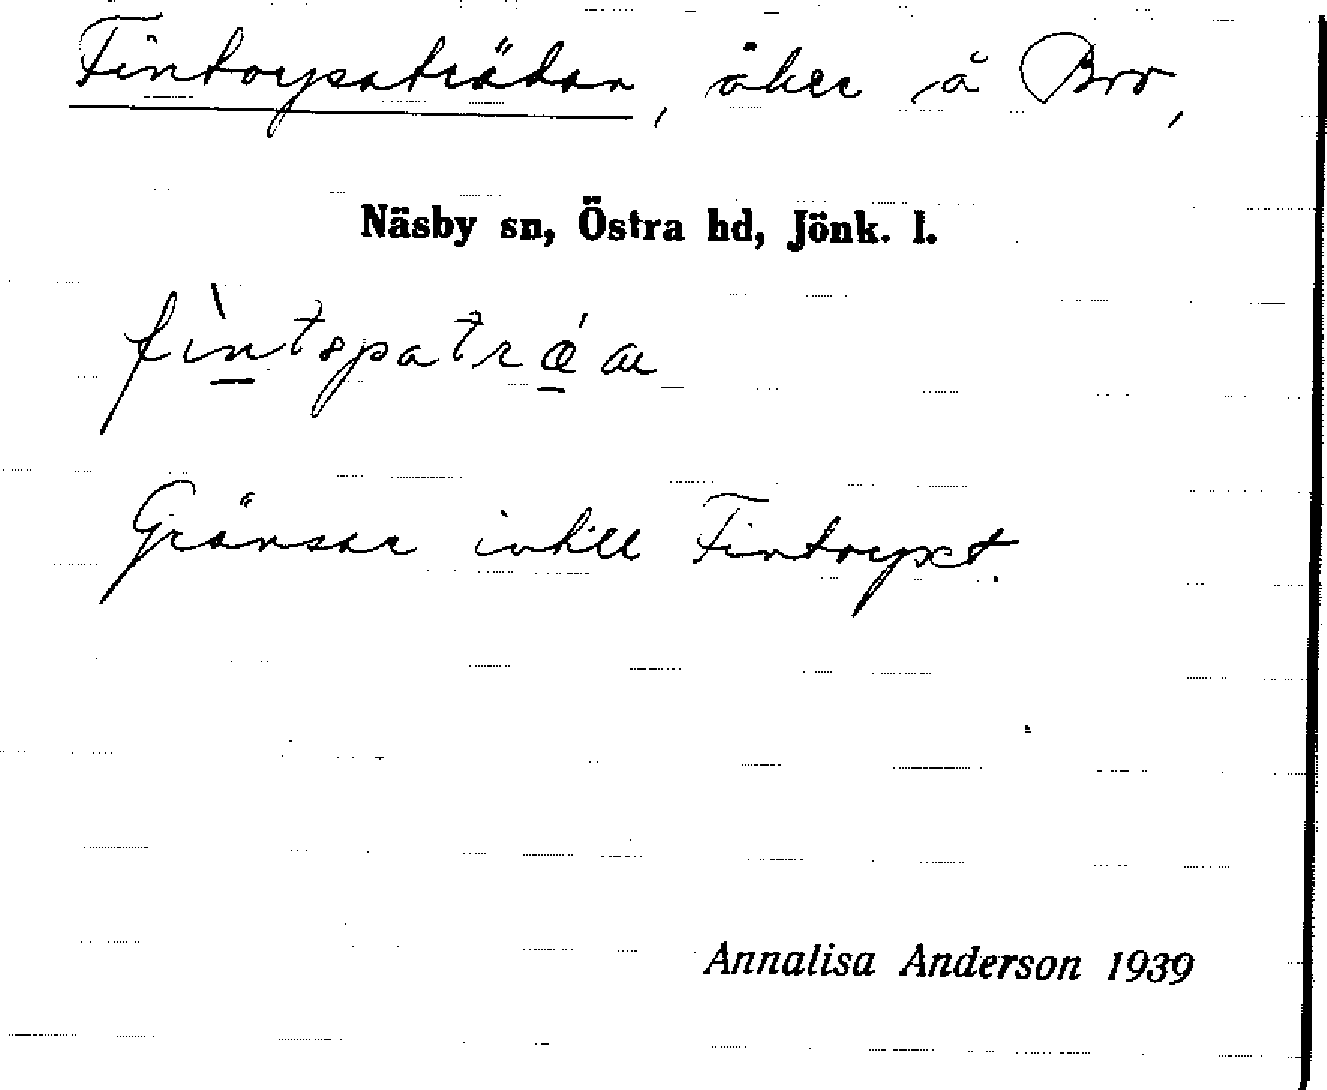 Fintorpaträdan, åker å Bro,
Näsby sn, Östra hd, Jönk. l.
Gränsar intill Fintorpet.
Annalisa Anderson 1939